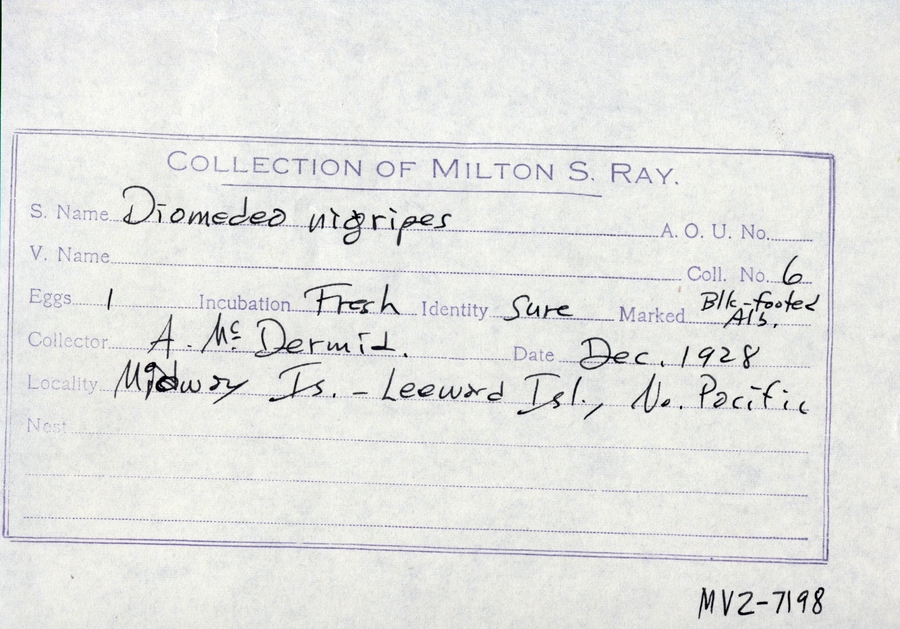 COLLECTION OF MILTON S. RAY.
S. Name Diomedea nigripes A. O. U. No.
V. Name Coll. No. 6
Eggs 1 Incubation Fresh Identity Sure Marked Blk-footed Alb.
Collector A. McDermid. Date Dec. 1928
Locality Midway Is. - Leeward Isl., No. Pacific
Nest
MVZ-7198